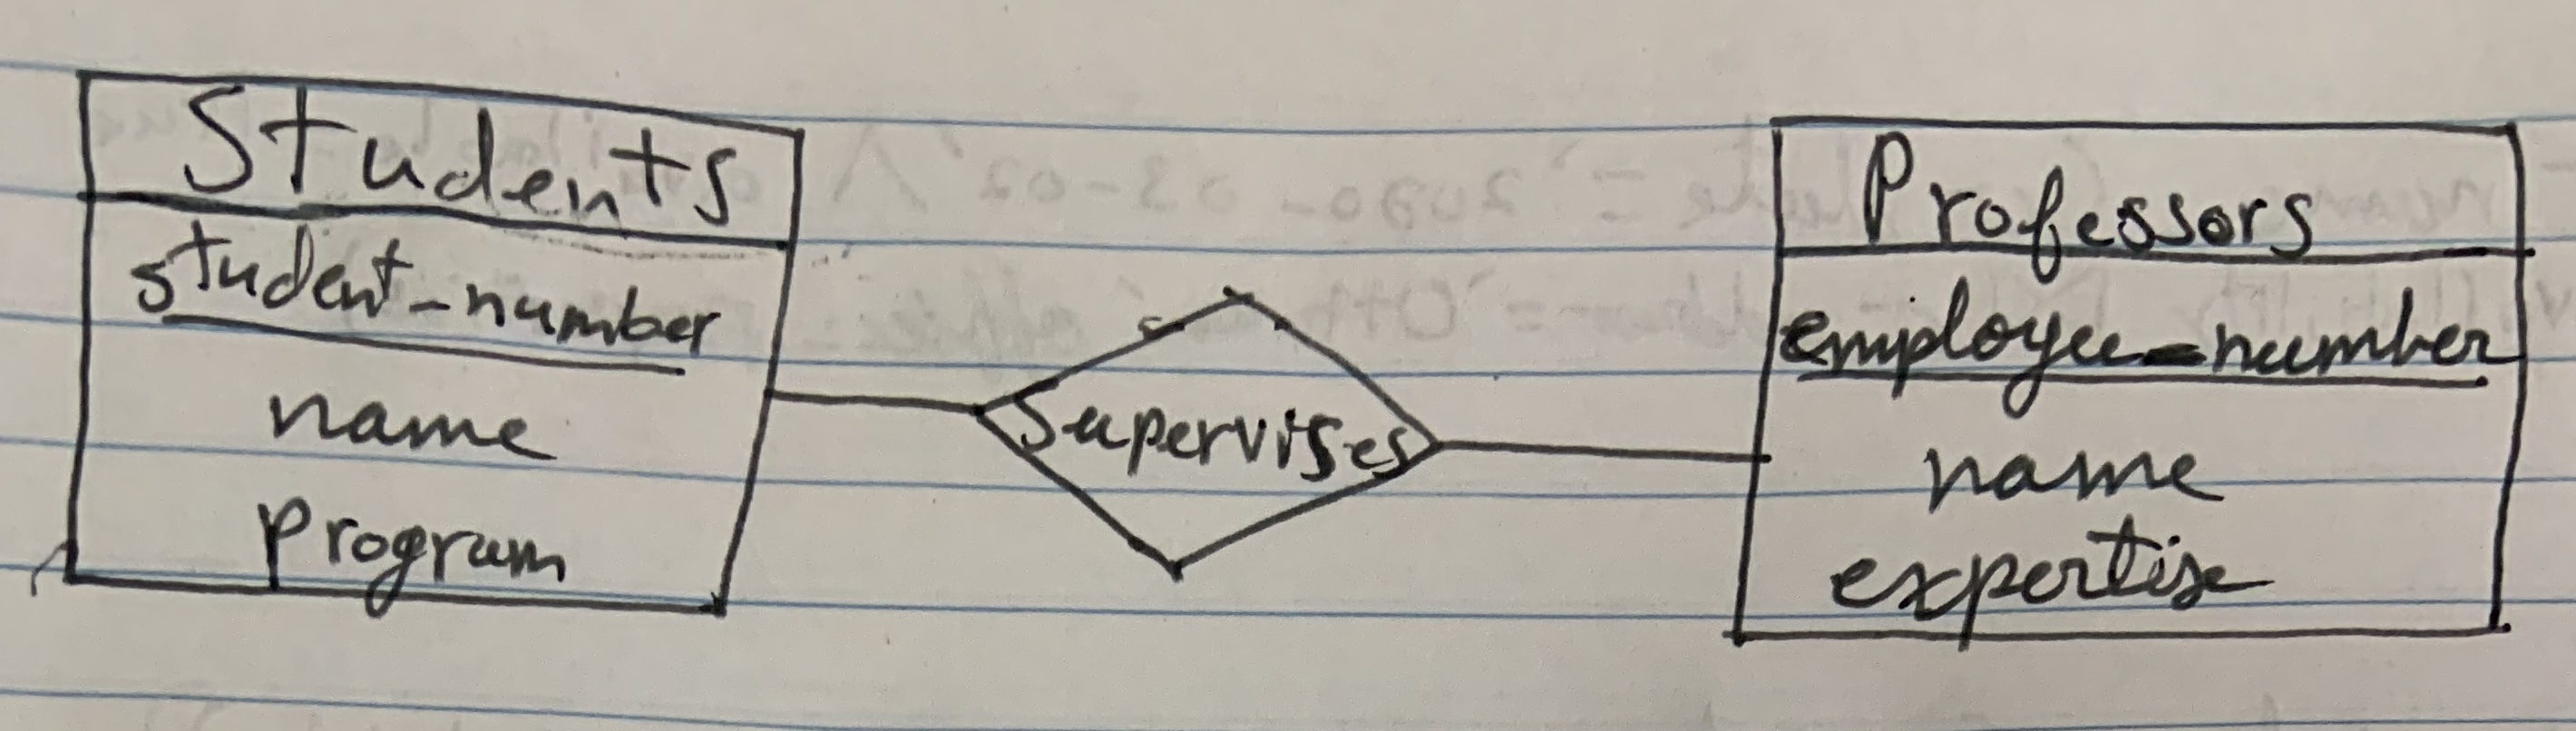 Students
student-number
name
program
Supervises
Professors
employee-number
name
expertise